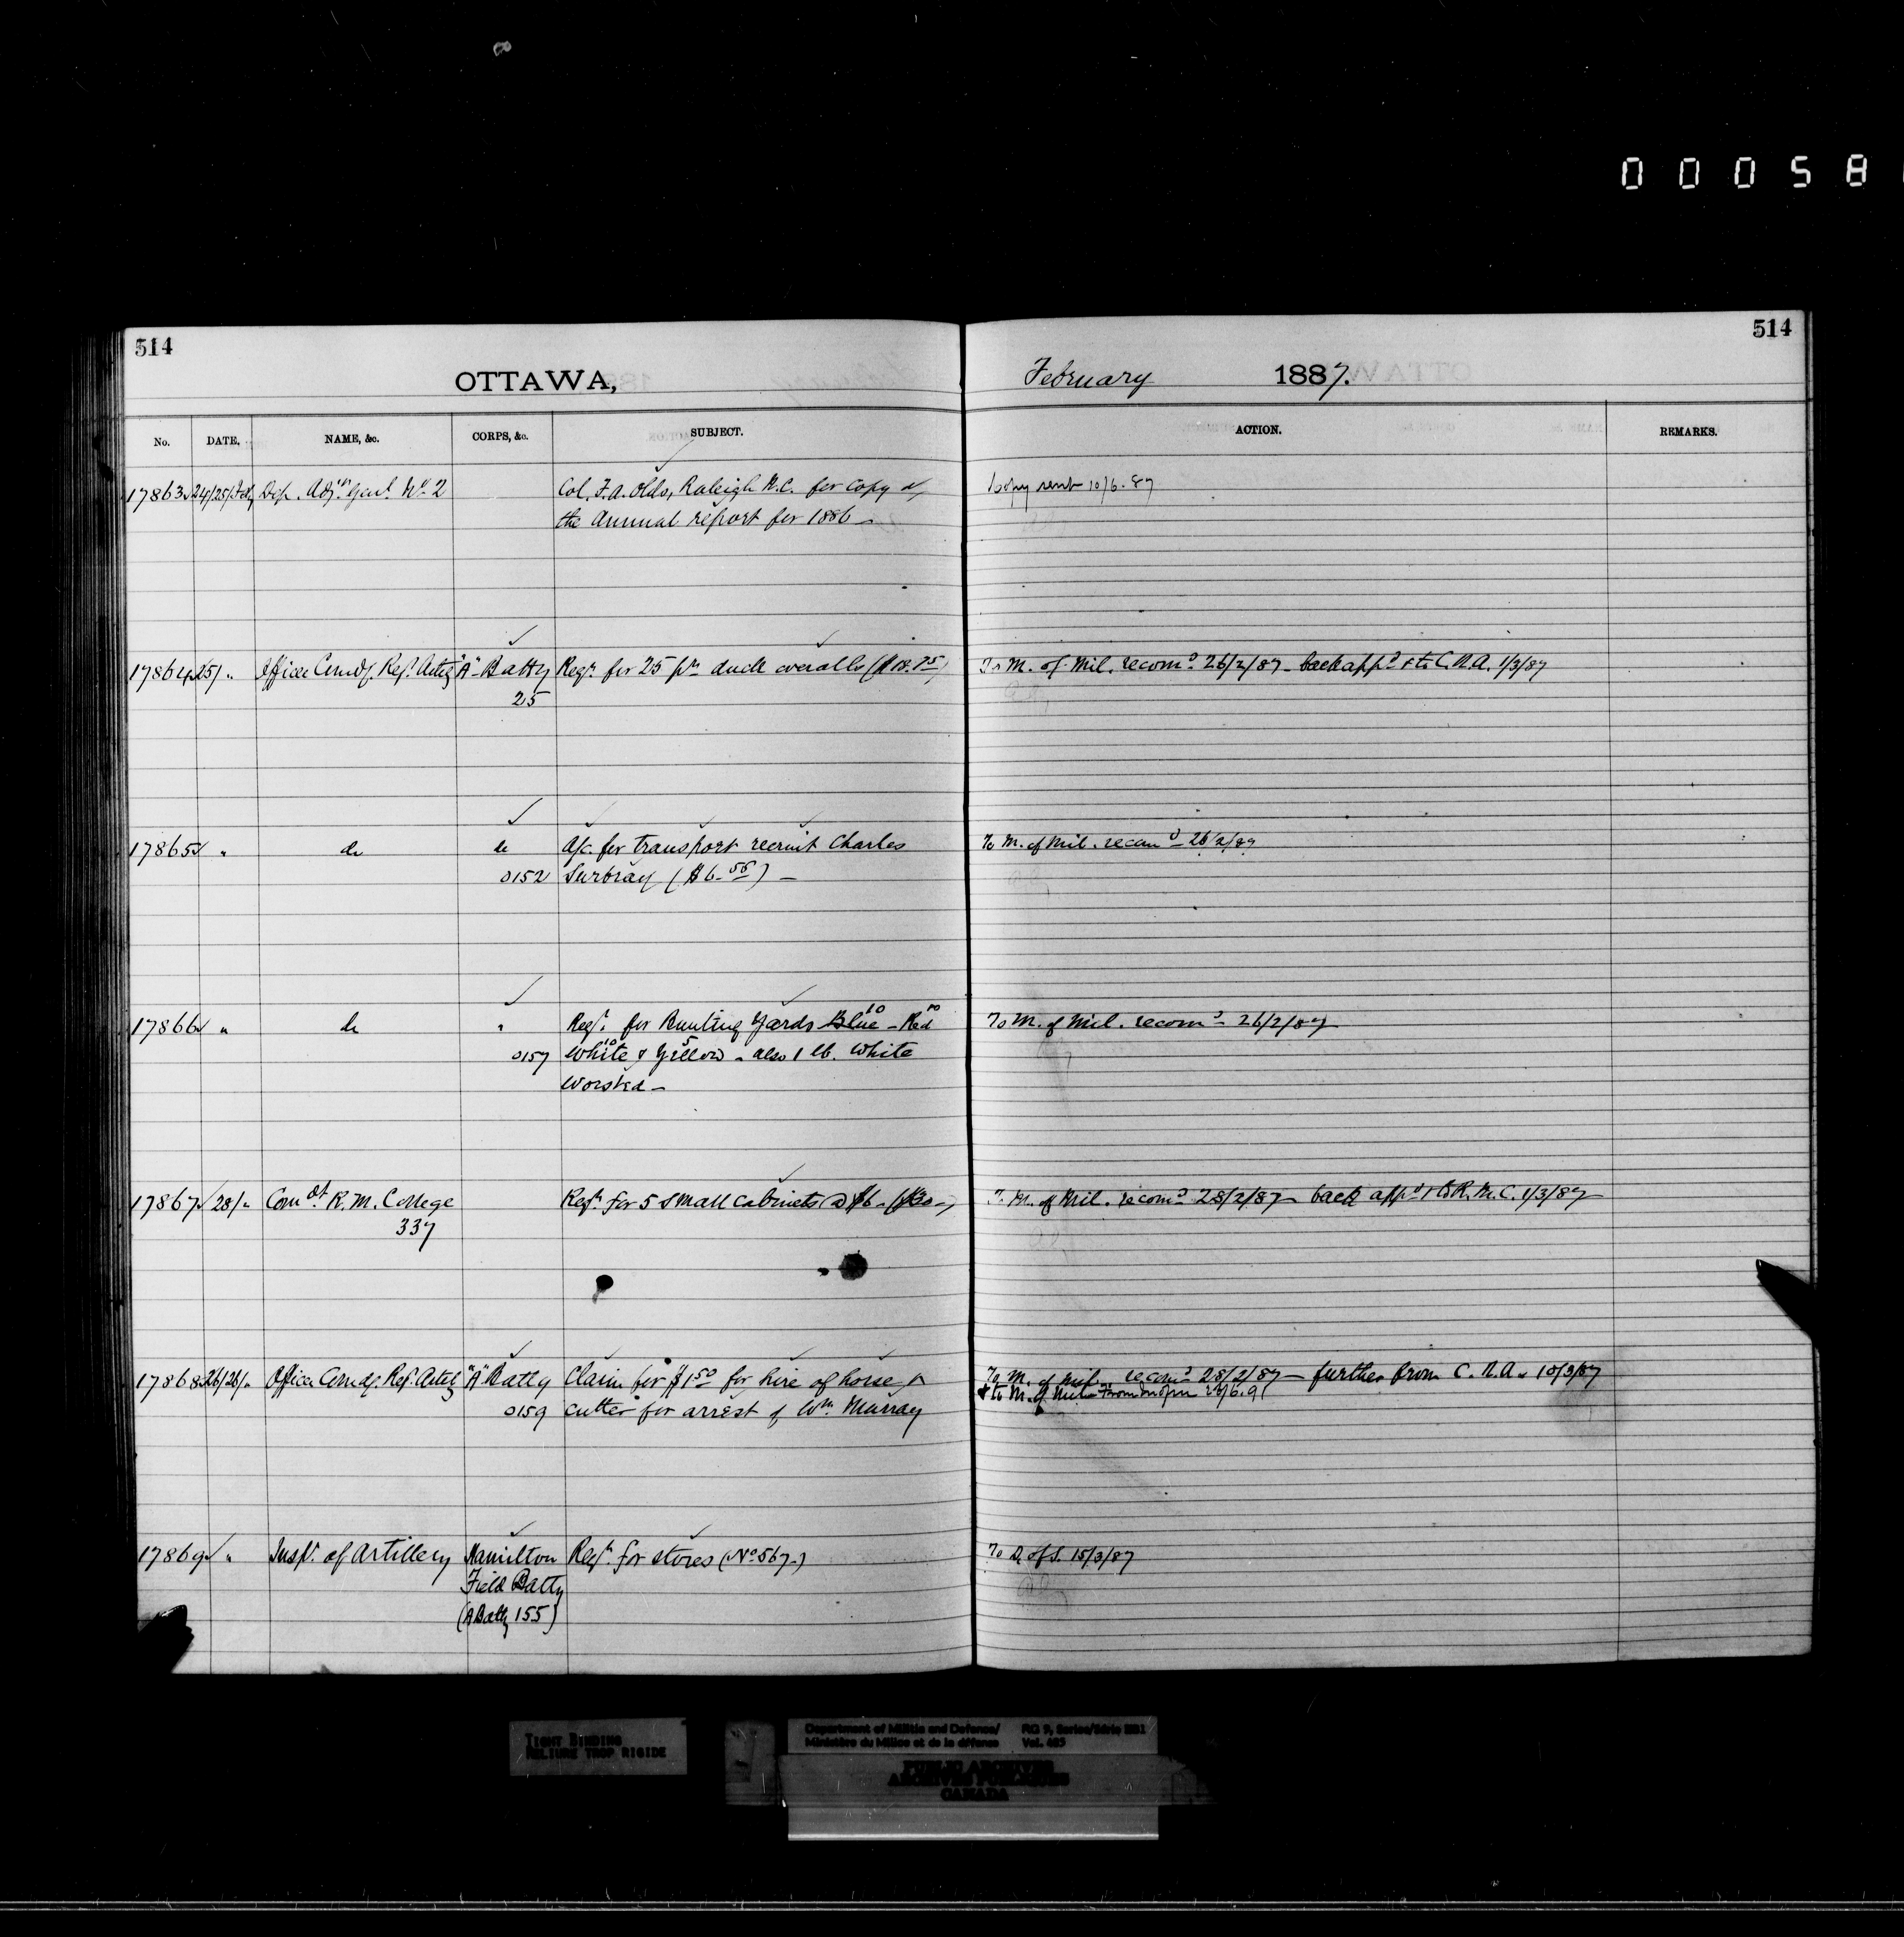 00058
514
514
OTTAWA,
February 1887.
No. DATE, NAME, &c. CORPS, &c. SUBJECT. ACTION. REMARKS.
17863 24/25/Feb Dep. Adjt. Genl. No. 2 Col. F. A. Olds, Raleigh N.C. for copy of Copy sent 10/6.87
the Annual report for 1886 –
17864 25/ " Officer Comdg. Regt. Arty "A" Batty Reqn. for 25 prs duck overalls ( To M. of Mil. recomd 26/2/87 – back appd & to C.R.A. 1/3/87
25
17865 " do do A/c. for transport recruit Charles To M. of Mil. recomd – 26/2/87
0152 Surbray ($6.55) –
17866 " do " Reqn. for Bunting Yards Blue 10 – Red 20 To M. of Mil. recomd – 26/2/87
0157 White 10 & Yellow 5 – also 1 lb. White
worsted –
17867 28/" Comdt. R. M. College Reqn. for 5 small cabinets @ $6 – ($30 –) To M. of Mil. recomd 28/2/87 – back appd & to R.M.C. 1/3/87
337
17868 26/28/" Officer Comdg. Regt. Arty "A" Batty Claim for $1.50 for hire of horse & To M. of Mil. recomd 28/2/87 – further from C.R.A. 10/3/87
& to M. of Mil.
0159 cutter for arrest of Wm. Murray
17869 " Inspr. of Artillery Hamilton Reqn. for stores (No 567–) To D. of S. 15/3/87
Field Batty
(A Batty 155)
TIGHT BINDING
RELIURE TROP RIGIDE
Department of Militia and Defence/ RG 9, Series/Série IIB1
Ministère du Milice et de la défense Vol. 465
PUBLIC ARCHIVES
ARCHIVES PUBLIQUES
CANADA